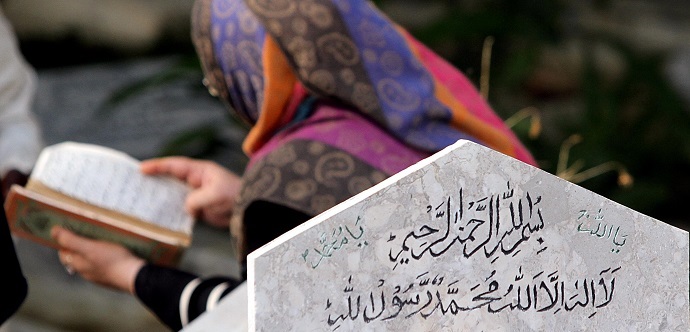 يا الله
بسم الله الرحمن الرحيم
يا محمد
لا اله الا الله محمد رسول الله